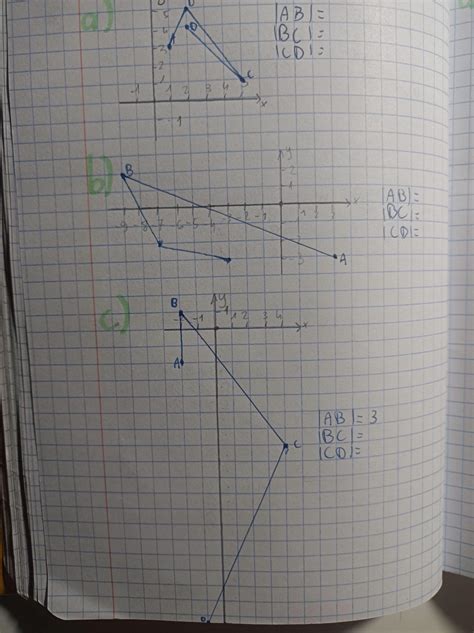 a)
|AB|=
|BC|=
|CD|=
5
3
A
D
C
-1 1 2 3 4 5 x
-1
b)
B
y
2
1
-9 -8 -7 -6 -5 -4 -3 -2 -1 1 2 3 x
-3
A
|AB|=
|BC|=
|CD|=
c)
B
y
1
-1 1 2 3 4 x
A
C
|AB|= 3
|BC|=
|CD|=